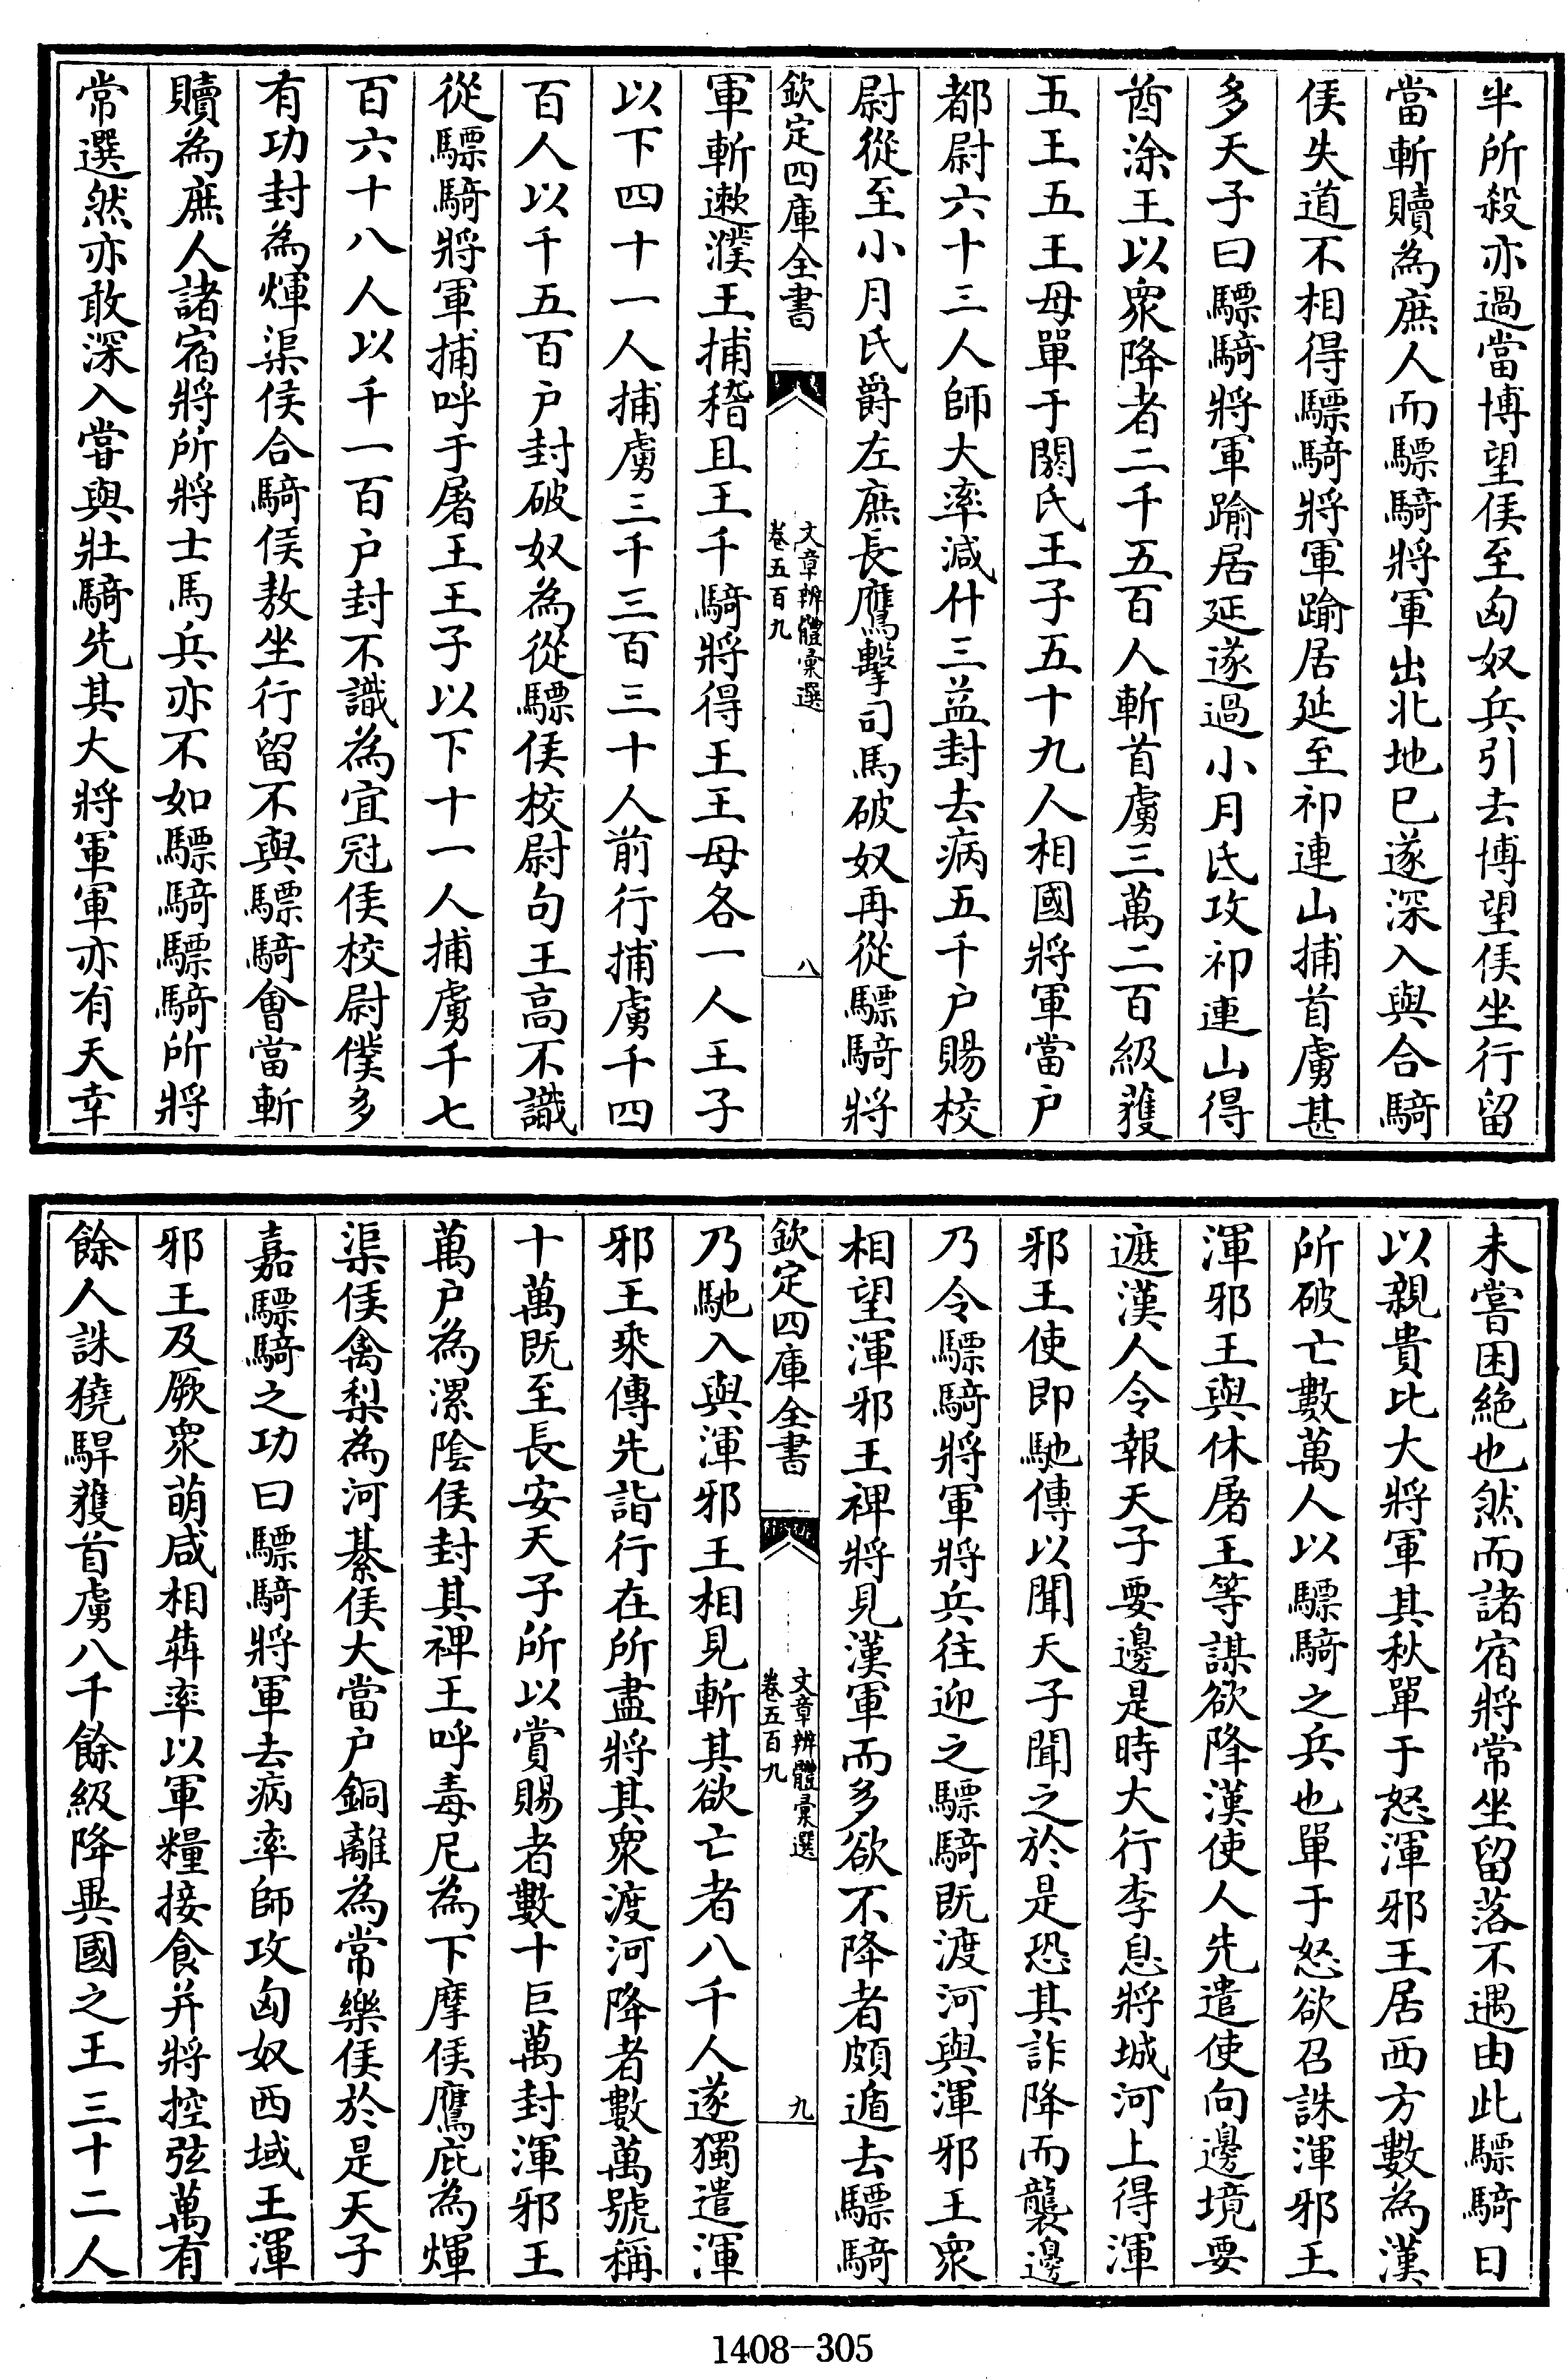 半所殺亦過當博望侯至匈奴兵引去博望侯坐行留
當斬贖為庶人而驃騎將軍出北地已遂深入與合騎
侯失道不相得驃騎將軍踰居延至祁連山捕首虜甚
多天子曰驃騎將軍踰居延遂過小月氏攻祁連山得
酋涂王以衆降者二千五百人斬首虜三萬二百級獲
五王五王母單于閼氏王子五十九人相國將軍當户
都尉六十三人師大率減什三益封去病五千户賜校
尉從至小月氏爵左庶長鷹擊司馬破奴再從驃騎將
欽定四庫全書
文章辨體彙選
卷五百九
八
軍斬遬濮王捕稽且王千騎將得王王母各一人王子
以下四十一人捕虜三千三百三十人前行捕虜千四
百人以千五百户封破奴為從驃侯校尉句王高不識
從驃騎將軍捕呼于屠王王子以下十一人捕虜千七
百六十八人以千一百户封不識為宜冠侯校尉僕多
有功封為煇渠侯合騎侯敖坐行留不與驃騎會當斬
贖為庶人諸宿將所將士馬兵亦不如驃騎驃騎所將
常選然亦敢深入嘗與壯騎先其大將軍軍亦有天幸
未嘗困絶也然而諸宿將常坐留落不遇由此驃騎日
以親貴比大將軍其秋單于怒渾邪王居西方數為漢
所破亡數萬人以驃騎之兵也單于怒欲召誅渾邪王
渾邪王與休屠王等謀欲降漢使人先遣使向邊境要
遮漢人令報天子要邊是時大行李息將城河上得渾
邪王使即馳傳以聞天子聞之於是恐其詐降而襲邊
乃令驃騎將軍將兵往迎之驃騎既渡河與渾邪王衆
相望渾邪王裨將見漢軍而多欲不降者頗遁去驃騎
欽定四庫全書
文章辨體彙選
卷五百九
九
乃馳入與渾邪王相見斬其欲亡者八千人遂獨遣渾
邪王乘傳先詣行在所盡將其衆渡河降者數萬號稱
十萬既至長安天子所以賞賜者數十巨萬封渾邪王
萬户為漯隂侯封其裨王呼毒尼為下摩侯鷹庇為煇
渠侯禽梨為河綦侯大當户銅離為常樂侯於是天子
嘉驃騎之功曰驃騎將軍去病率師攻匈奴西域王渾
邪王及厥衆萌咸相犇率以軍糧接食并將控弦萬有
餘人誅獟駻獲首虜八千餘級降異國之王三十二人
1408-305